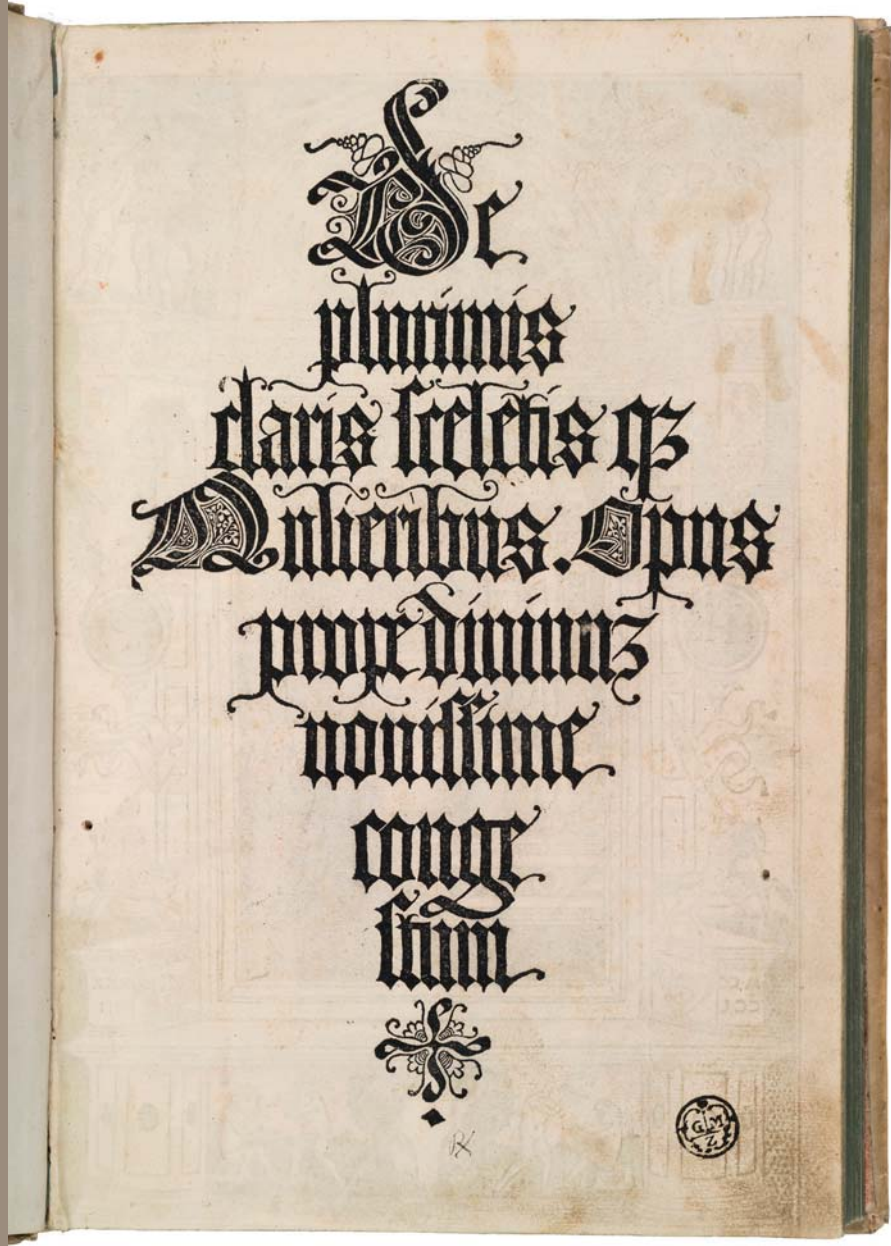 De
plurimis
claris sceletis qꝫ
Mulieribus. Opus
prope diuinuꝫ
nouissime
conge
stum
G M
Z